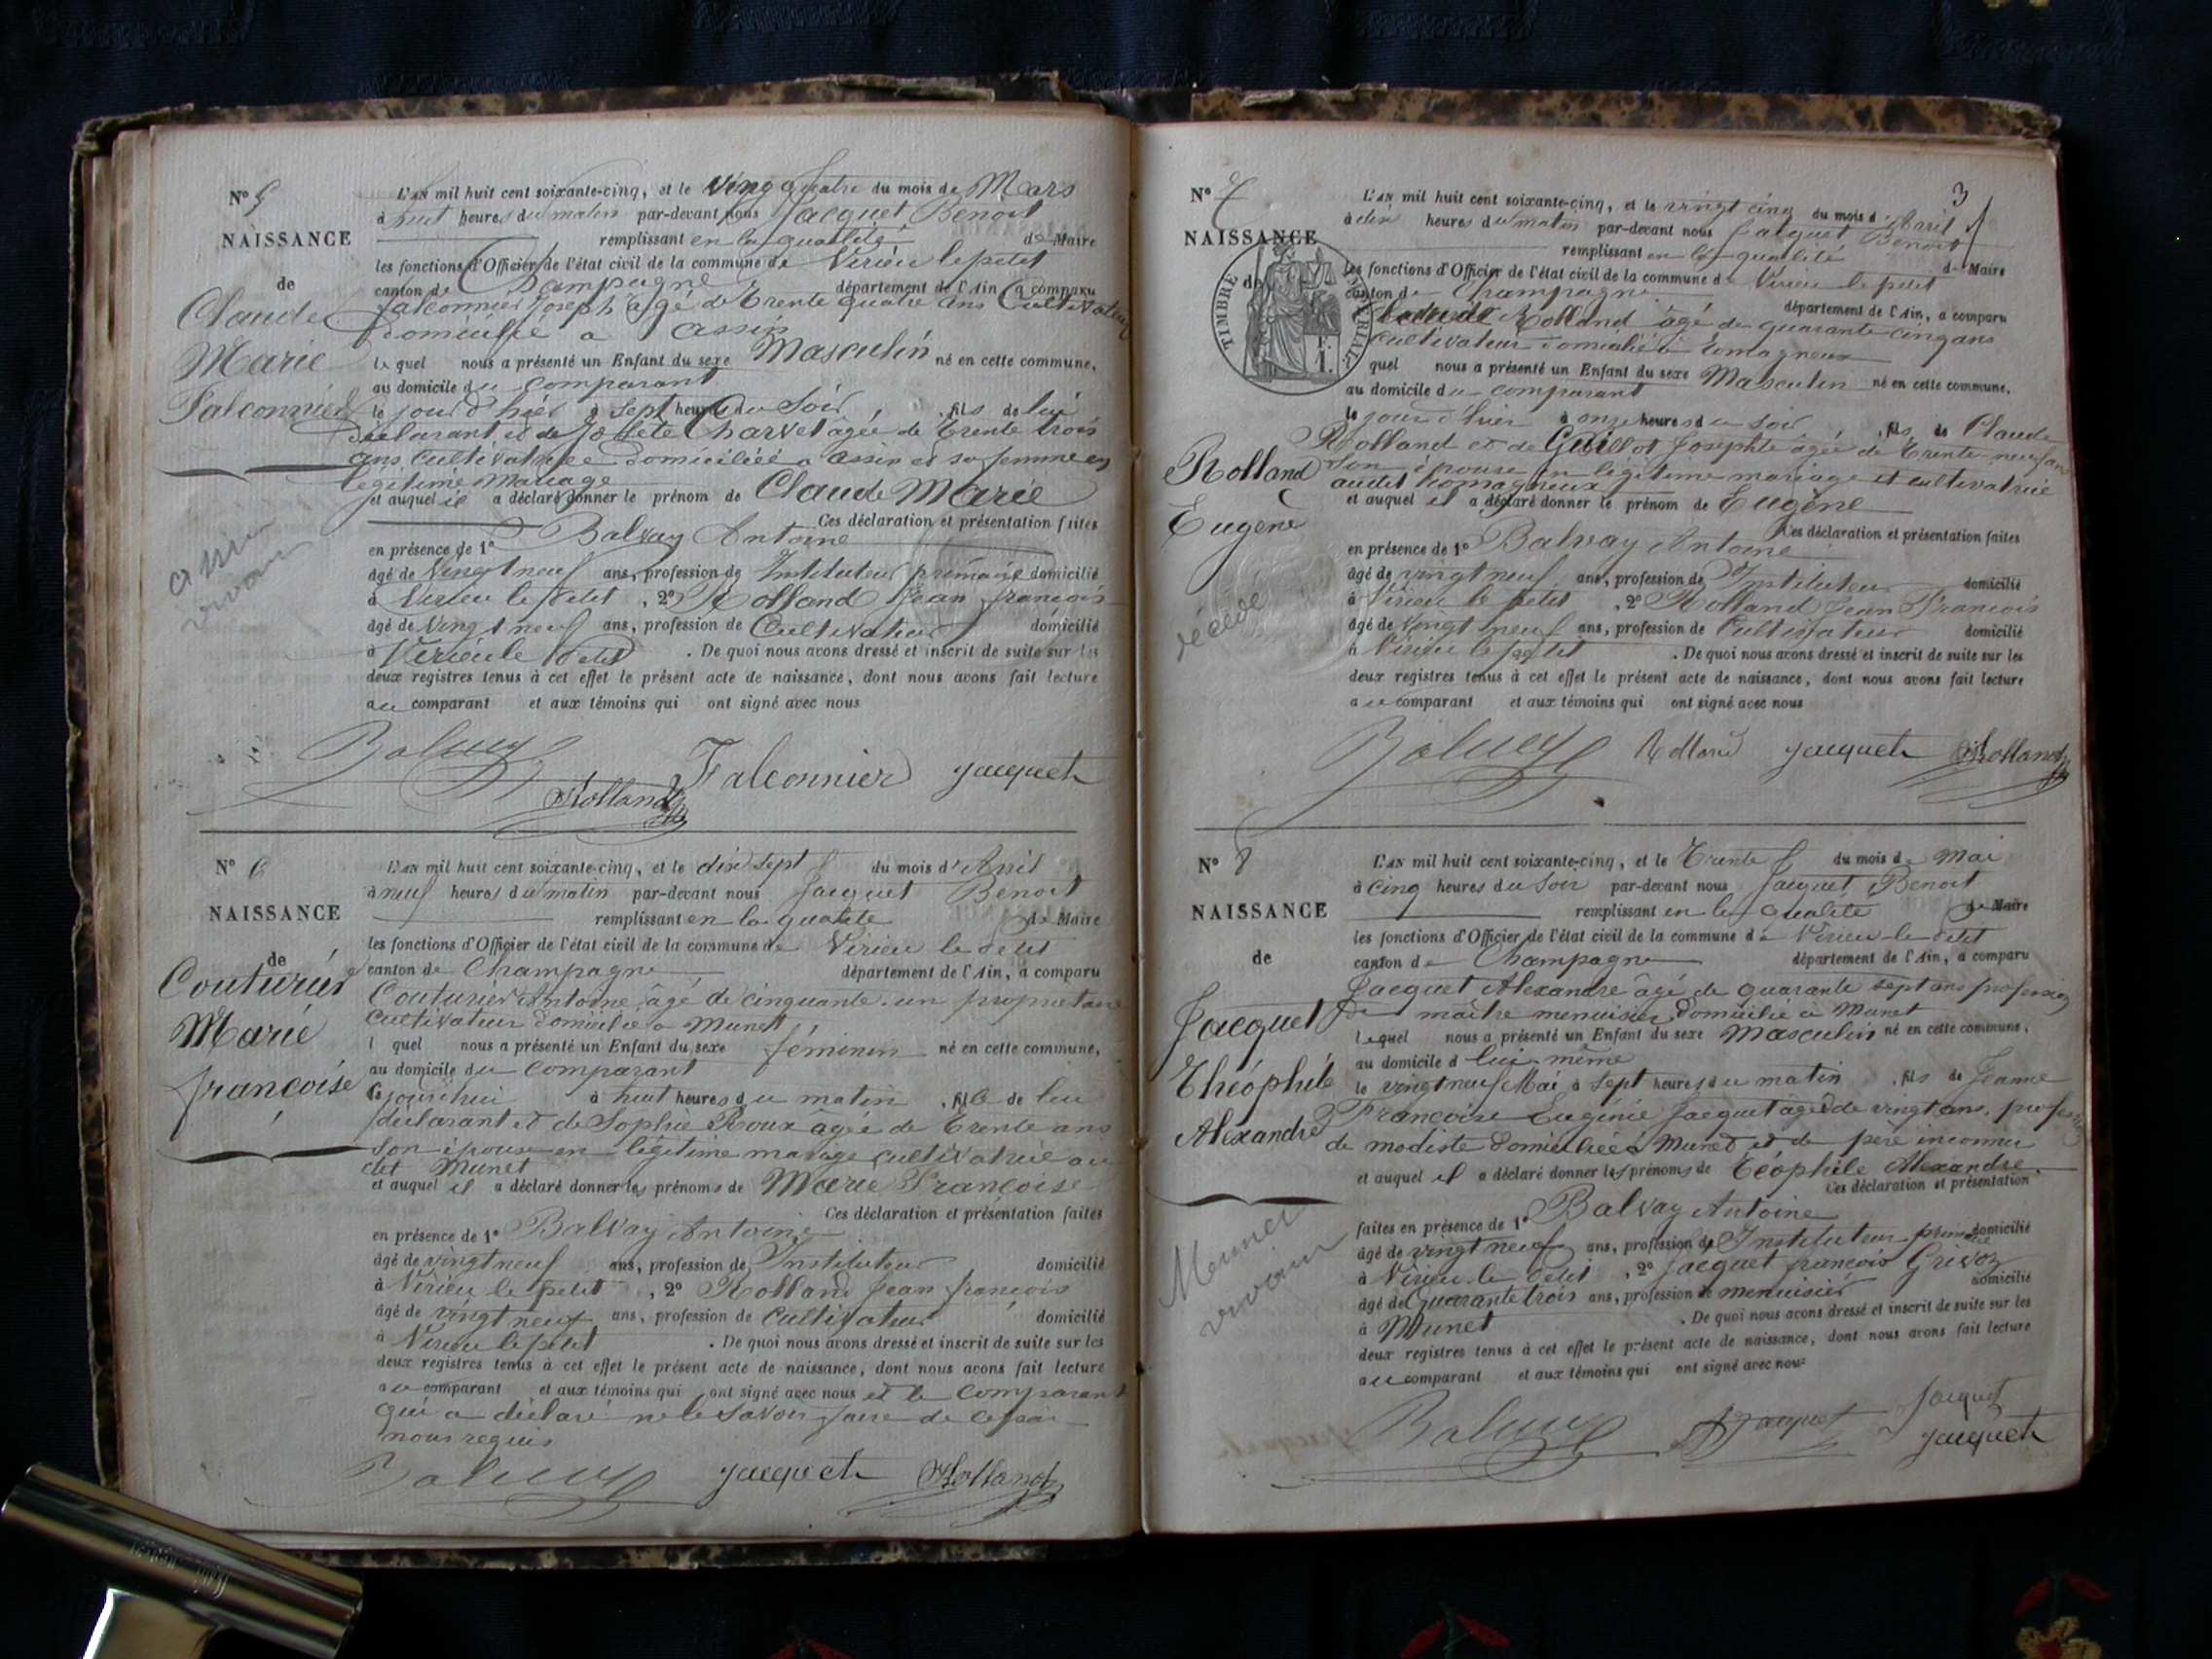 N° 5
NAISSANCE
de
Claude
Marie
Falconnier
L'AN mil huit cent soixante-cinq, et le Vingt quatre du mois de Mars
à huit heures du matin par-devant nous Jacquet Benoit
remplissant en la qualité de Maire
les fonctions d'Officier de l'état civil de la commune de Virieu le petit
canton de Champagne département de l'Ain, a comparu
Falconnier Joseph âgé de Trente quatre ans Cultivateur
domicilié a Assin
lequel nous a présenté un Enfant du sexe Masculin né en cette commune,
au domicile du comparant
le jour d'hier à Sept heures du Soir, fils de lui
déclarant et de Charvet agée de Trente trois
ans Cultivatrice domiciliée a Assin et sa femme en
légitime Mariage
et auquel il a déclaré donner le prénom de Claude Marie
Ces déclaration et présentation faites
en présence de 1° Balvay Antoine
âgé de Vingt neuf ans, profession de Instituteur primaire domicilié
à Virieu le Petit, 2° Rolland Jean françois
âgé de Vingt neuf ans, profession de Cultivateur domicilié
à Virieu le Petit. De quoi nous avons dressé et inscrit de suite sur les
deux registres tenus à cet effet le présent acte de naissance, dont nous avons fait lecture
au comparant et aux témoins qui ont signé avec nous
Balvay Falconnier Jacquet
Rolland
N° 6
NAISSANCE
de
Couturier
Marie
françoise
L'AN mil huit cent soixante-cinq, et le dix sept du mois d'Avril
à neuf heures du matin par-devant nous Jacquet Benoit
remplissant en la qualité de Maire
les fonctions d'Officier de l'état civil de la commune de Virieu le Petit
canton de Champagne département de l'Ain, a comparu
Couturier Antoine âgé de cinquante-un propriétaire
cultivateur domicilié a Munet
l quel nous a présenté un Enfant du sexe féminin né en cette commune,
au domicile du comparant
à huit heures du matin, fille de lui
déclarant et de Sophie Roux âgée de Trente ans
son épouse en légitime mariage cultivatrice au
dit Munet
et auquel il a déclaré donner les prénoms de Marie Françoise
Ces déclaration et présentation faites
en présence de 1° Balvay Antoine
âgé de vingt neuf ans, profession de Instituteur domicilié
à Virieu le petit, 2° Rolland Jean françois
âgé de vingt neuf ans, profession de Cultivateur domicilié
à Virieu le petit. De quoi nous avons dressé et inscrit de suite sur les
deux registres tenus à cet effet le présent acte de naissance, dont nous avons fait lecture
au comparant et aux témoins qui ont signé avec nous et le comparant
qui a déclaré ne le savoir faire de ce par
nous requis
Balvay Jacquet Rolland
3
N° 7
NAISSANCE
de
TIMBRE IMPÉRIAL
Rolland
Eugène
décédé
L'AN mil huit cent soixante-cinq, et le vingt cinq du mois d'Avril
à dix heures du matin par-devant nous Jacquet Benoit
remplissant en la qualité de Maire
les fonctions d'Officier de l'état civil de la commune de Virieu le petit
canton de Champagne département de l'Ain, a comparu
Rolland âgé de quarante cinq ans
cultivateur domicilié à Romagneux
quel nous a présenté un Enfant du sexe Masculin né en cette commune,
au domicile du comparant
le jour d'hier à onze heures du soir, fils de Claude
Rolland et de Guillot Josephte âgée de Trente neuf ans
son épouse en légitime mariage et cultivatrice
audit Romagneux
et auquel il a déclaré donner le prénom de Eugène
Ces déclaration et présentation faites
en présence de 1° Balvay Antoine
âgé de vingt neuf ans, profession de Instituteur domicilié
à Virieu le petit, 2° Rolland Jean François
âgé de vingt neuf ans, profession de Cultivateur domicilié
à Virieu le petit. De quoi nous avons dressé et inscrit de suite sur les
deux registres tenus à cet effet le présent acte de naissance, dont nous avons fait lecture
au comparant et aux témoins qui ont signé avec nous
Balvay Rolland Jacquet Rolland
N° 8
NAISSANCE
de
Jacquet
Théophile
Alexandre
L'AN mil huit cent soixante-cinq, et le Trente du mois de Mai
à cinq heures du Soir par-devant nous Jacquet Benoit
remplissant en la qualité de Maire
les fonctions d'Officier de l'état civil de la commune de Virieu le Petit
canton de Champagne département de l'Ain, a comparu
Jacquet Alexandre âgé de quarante sept ans profession
de maître menuisier domicilié à Munet
lequel nous a présenté un Enfant du sexe Masculin né en cette commune,
au domicile d lui même
le vingt neuf Mai à Sept heures du matin, fils de Jeanne
Françoise Eugénie Jacquet âgée de vingt ans, profession
de modiste domiciliée à Munet et de père inconnu
et auquel il a déclaré donner les prénoms de Téophile Alexandre.
Ces déclaration et présentation
faites en présence de 1° Balvay Antoine
âgé de vingt neuf ans, profession de Instituteur primaire domicilié
à Virieu le Petit, 2° Jacquet françois Grivoz
âgé de Quarante trois ans, profession de menuisier domicilié
à Munet. De quoi nous avons dressé et inscrit de suite sur les
deux registres tenus à cet effet le présent acte de naissance, dont nous avons fait lecture
au comparant et aux témoins qui ont signé avec nous
Jacquet
Balvay Jacquet Jacquet